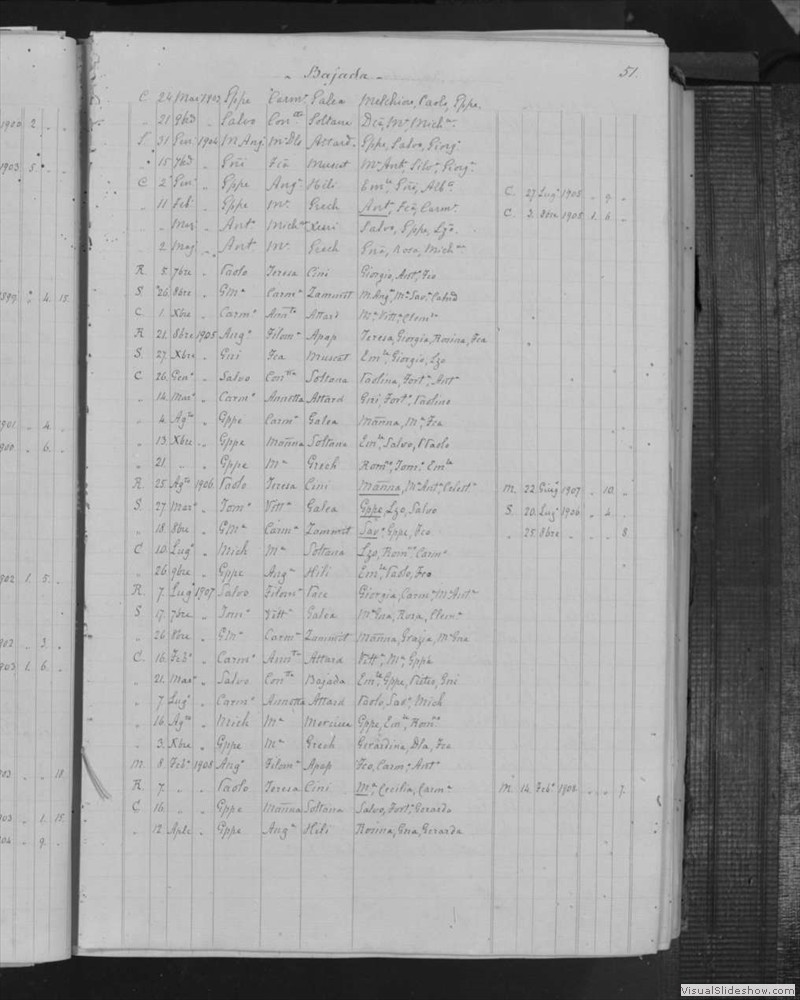 - Bajada -
51.
C 24 Mar 1903 Gppe Carmª Galea Melchiore, Paolo, Gppe.
„ 21 9bre „ Salvo Conttª Soltana Mª, Michª.
S. 31 Gen. 1904 M. Angˡ M. Dls Attard. Gppe, Salvo, Giorgº.
„ 15 „ Gni Fca Muscat Mª Antª, Silvº, Giorgº.
C 2 Gen. „ Gppe Angª Hili Emlª, Gni, C. 27 Lugº 1905 „ 9 „
„ 11 Feb. „ Gppe Mª. Grech Antª, Fca, Carmª. C. 2. 8bre 1905 1. 6 „
„ Mar „ Antº Michª Xerri Salvº, Gppe, Lzº.
„ 2 Mag „ Antº Mª. Grech Rosa, Michª
R. 5. 7bre „ Paolo Teresa Cini Giorgio, Antº, Fco
S. 26. 8bre „ Gmª Carmª Zammit M. Angª, Mª. Savª.
C. 1. Xbre „ Carmº Anntª Attard Mª, Vittª, Clemtª
R. 21. 8bre 1905 Angº Filomª Apap Teresa, Giorgia, Rosina, Fca
S. 27. Xbre „ Gni Fca Muscat Emlª, Giorgio, Lzo
C 26. Genº „ Salvo Conttª Soltana Paolina, Fortª, Antª
„ 14. Marº „ Carmº Annetta Attard Gni, Fortº, Paolino
„ 4. Agtº „ Gppe Carmª Galea Manna, Mª, Fca
„ 13. Xbre „ Gppe Manna Soltana Emlº, Salvo, Paolo
„ 21. „ „ Gppe Mª Grech Romº, Tomº, Emlº
R. 25. Agtº 1906. Paolo Teresa Cini Manna, Mª Antª, Celestª. M. 22. Giugº 1907 „ 10. „
S. 27. Marº „ Tomº Vittª Galea Gppe, Lzo, Salvo S. 20. Lugº 1906 „ 4. „
„ 18. 8bre „ Gmª Carmª Zammit Savº, Gppe, Fco „ 25. 8bre „ „ „ 8.
C 10. Lugº „ Mich Mª Soltana Lzo, Romº, Carmº
„ 26. 9bre „ Gppe Angª Hili Emlº, Paolo, Fco
R. 7. Lugº 1907 Salvo Filomª Pace Giorgia, Carmª, Mª Antª
S. 17. 7bre „ Tomº Vittª Galea Mª Gna, Rosa, Clemª
„ 26 8bre „ Gmª Carmª Zammit Manna, Grazja, Mª Gna
C. 16. Febº „ Carmº Anntª Attard Vittª, Mª, Gppa
„ 21. Marº „ Salvo Conttª Bajada Emlº, Gppe, Pietro, Gni
„ 7 Lugº „ Carmº Annetta Attard Paolo, Savº, Mich
„ 16. Agtº „ Mich Mª Mercieca Gppe, Emlº, Romº
„ 3. Xbre „ Gppe Mª Grech Gerardina, Dla, Fca
M. 8. Febº 1908 Angº Filomª Apap Fco, Carmº, Antº
R. 7. „ „ Paolo Teresa Cini Mª, Cecilia, Carmª M. 14. Febº 1908 „ „ 7.
C 16. „ „ Gppe Manna Soltana Salvo, Fortº, Gerardo
„ 12. Aple „ Gppe Angª Hili Rosina, Gna, Gerarda
VisualSlideshow.com